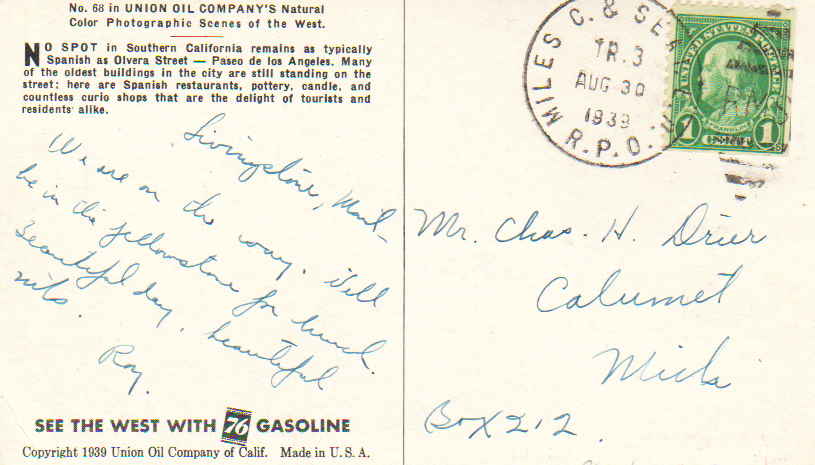 No. 68 in UNION OIL COMPANY'S Natural
Color Photographic Scenes of the West.
NO SPOT in Southern California remains as typically
Spanish as Olvera Street — Paseo de los Angeles. Many
of the oldest buildings in the city are still standing on the
street; here are Spanish restaurants, pottery, candle, and
countless curio shops that are the delight of tourists and
residents alike.
Livingstone, Mont-
We are on the way. Will
be in the Yellowstone for lunch.
Beautiful day, beautiful
Roy.
SEE THE WEST WITH 76 GASOLINE
Copyright 1939 Union Oil Company of Calif. Made in U. S. A.
MILES C. & SEA
TR. 3
AUG 30
1939
R.P.O.
UNITED STATES POSTAGE
FRANKLIN
1 1
Mr. Chas. H. Drier
Calumet
Mich
Box 212.